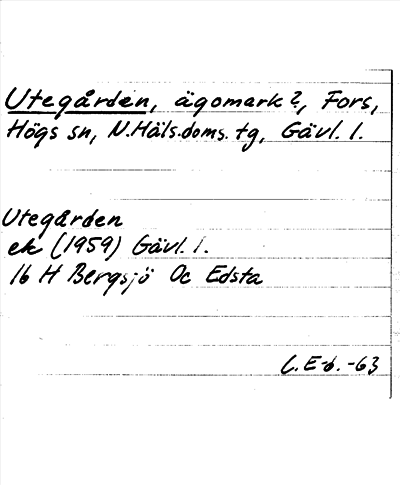 Utegården, ägomark?, Fors,
Högs sn, N.Häls.doms. tg, Gävl. l.
Utegården
ek (1959) Gävl. l.
16 H Bergsjö Oc Edsta
C.E-b. -63